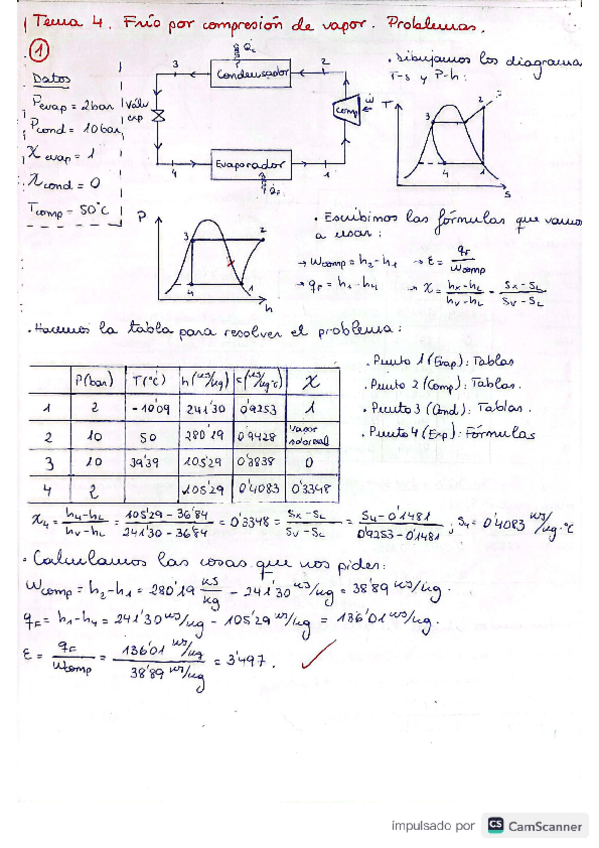 Tema 4. Frío por compresión de vapor. Problemas.
1
Datos
Pevap = 2bar
Pcond = 10bar
Xevap = 1
Xcond = 0
Tcomp = 50°C
3
Condensador
2
Válv
exp
comp
4
Evaporador
1
· Dibujamos los diagrama
T-s y P-h:
T
2
3
4
1
s
P
3
2
4
1
h
· Escribimos las fórmulas que vamos
a usar:
→ Wcomp = h2-h1 → ε = qF/Wcomp
→ qF = h1-h4 → X = hx-hL/hv-hL = Sx-SL/Sv-SL
· Hacemos la tabla para resolver el problema:
P(bar) T(°C) h(kJ/kg) s(kJ/kg°C) X
1 2 -10'09 241'30 0'9253 1
2 10 50 280'19 0'9428 vapor
3 10 39'39 105'29 0'3838 0
4 2 105'29 0'4083 0'3348
· Punto 1 (Evap): Tablas
· Punto 2 (Comp): Tablas.
· Punto 3 (Cond): Tablas.
· Punto 4 (Exp): Fórmulas
X4 = h4-hL/hv-hL = 105'29 - 36'84/241'30 - 36'84 = 0'3348 = Sx-SL/Sv-SL = S4-0'1481/0'9253-0'1481 ; S4 = 0'4083 kJ/kg·°C
· Calculamos las cosas que nos piden:
Wcomp = h2-h1 = 280'19 kJ/kg - 241'30 kJ/kg = 38'89 kJ/kg.
qF = h1-h4 = 241'30 kJ/kg - 105'29 kJ/kg = 136'01 kJ/kg.
ε = qF/Wcomp = 136'01 kJ/kg/38'89 kJ/kg = 3'497.
impulsado por CS CamScanner